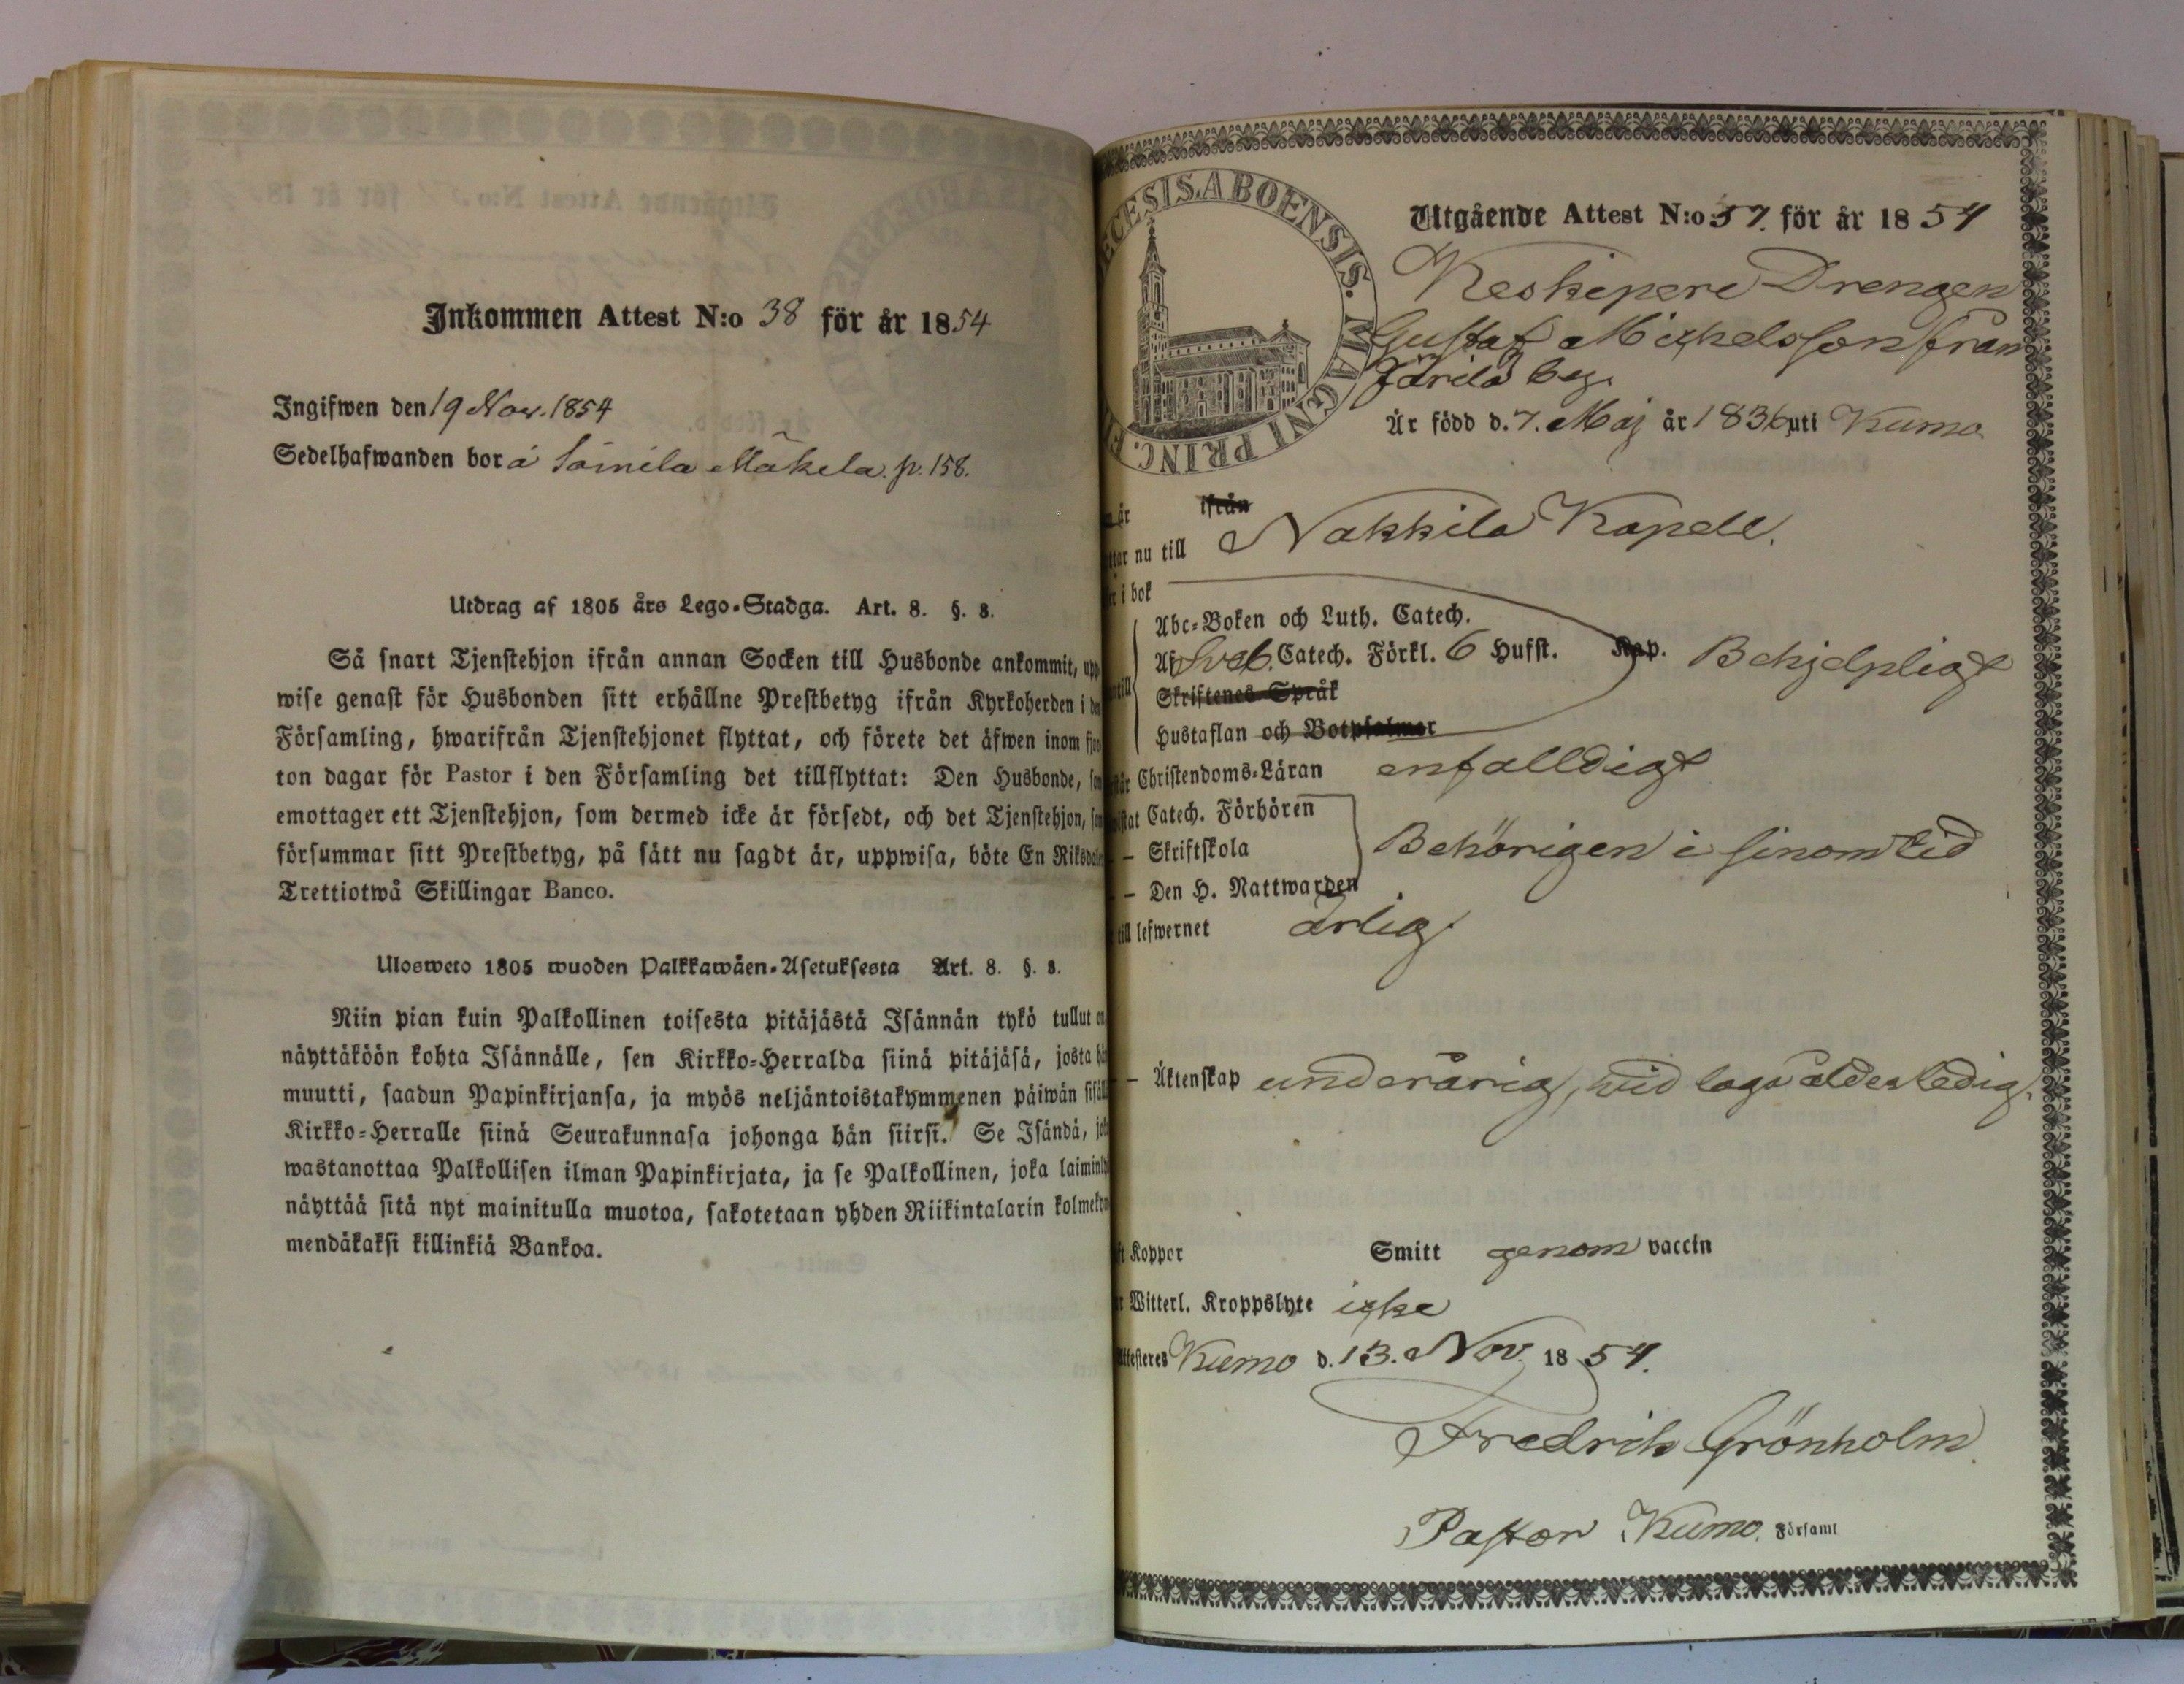 Inkommen Attest N:o 38 för år 1854
Ingifwen den 19 Nov. 1854
Sedelhafwanden bor å Soinila Mäkelä p. 158.
Utdrag af 1805 års Lego-Stadga. Art. 8. §. 8.
Så snart Tjenstehjon ifrån annan Socken till Husbonde ankommit, upp
wise genast för Husbonden sitt erhållne Prestbetyg ifrån Kyrkoherden i
Församling, hwarifrån Tjenstehjonet flyttat, och förete det äfwen inom
ton dagar för Pastor i den Församling det tillflyttat: Den Husbonde,
emottager ett Tjenstehjon, som dermed icke är försedt, och det Tjenstehjon,
försummar sitt Prestbetyg, på sätt nu sagdt är, uppwisa, böte En Riksdaler
Trettiotwå Skillingar Banco.
Ulosweto 1805 wuoden Palkkawäen-Asetuksesta Art. 8. §. 8.
Niin pian kuin Palkollinen toisesta pitäjästä Isännän tykö tullut on,
näyttäköön kohta Isännälle, sen Kirkko-Herralda siinä pitäjäsä, josta
muutti, saadun Papinkirjansa, ja myös neljäntoistakymmenen päiwän
Kirkko-Herralle siinä Seurakunnasa johonga hän siirsi. Se Isändä,
wastanottaa Palkollisen ilman Papinkirjata, ja se Palkollinen, joka
näyttää sitä nyt mainitulla muotoa, sakotetaan yhden Riikintalarin
mendäkaksi killinkiä Bankoa.
ECESIS. ABOENSIS. MAGNI PRINC.
Utgående Attest N:o 57. för år 1854
Keskipere Drengen
Gustaf Michelsson från
Järilä beg.
Är född d. 7. Maj år 1836 uti Kumo
är ifrån
nu till Nakkila Kapell.
i bok
Abc-Boken och Luth. Catech.
Af Sveb. Catech. Förkl. 6 Hufst. Kap. Behjelpligt
Skriftenes Språk
Hustaflan och Botpsalmer
Christendoms-Läran enfalldigt
Catech. Förhören
— Skriftskola Behörigen i sinom tid
— Den H. Nattwarden
till lefwernet ärlig.
— Äktenskap underårig, vid laga ålder ledig.
Koppor Smitt genom vaccin
Witterl. Kroppslyte icke
Attesteres Kumo d. 13. Nov. 1854.
Fredrik Grönholm
Pastor Kumo. Församl